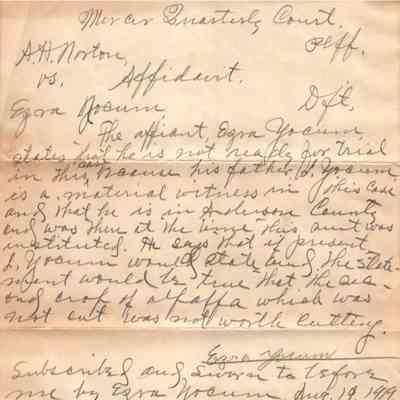 Mercer Quarterly Court.
A.H. Norton, Plff.
vs. Affidavit.
Ezra Yocum Dft.
The affiant, Ezra Yocum,
states that he is not ready for trial
in this case because his father, L. Yocum,
is a material witness in this case
and that he is in Anderson County
and was there at the time this suit was
instituted. He says that if present
L. Yocum would state and the state-
ment would be true that the sec-
ond crop of alfalfa which was
not cut was not worth cutting.
Ezra Yocum
Subscribed and Sworn to before
me by Ezra Yocum Aug. 19, 1919